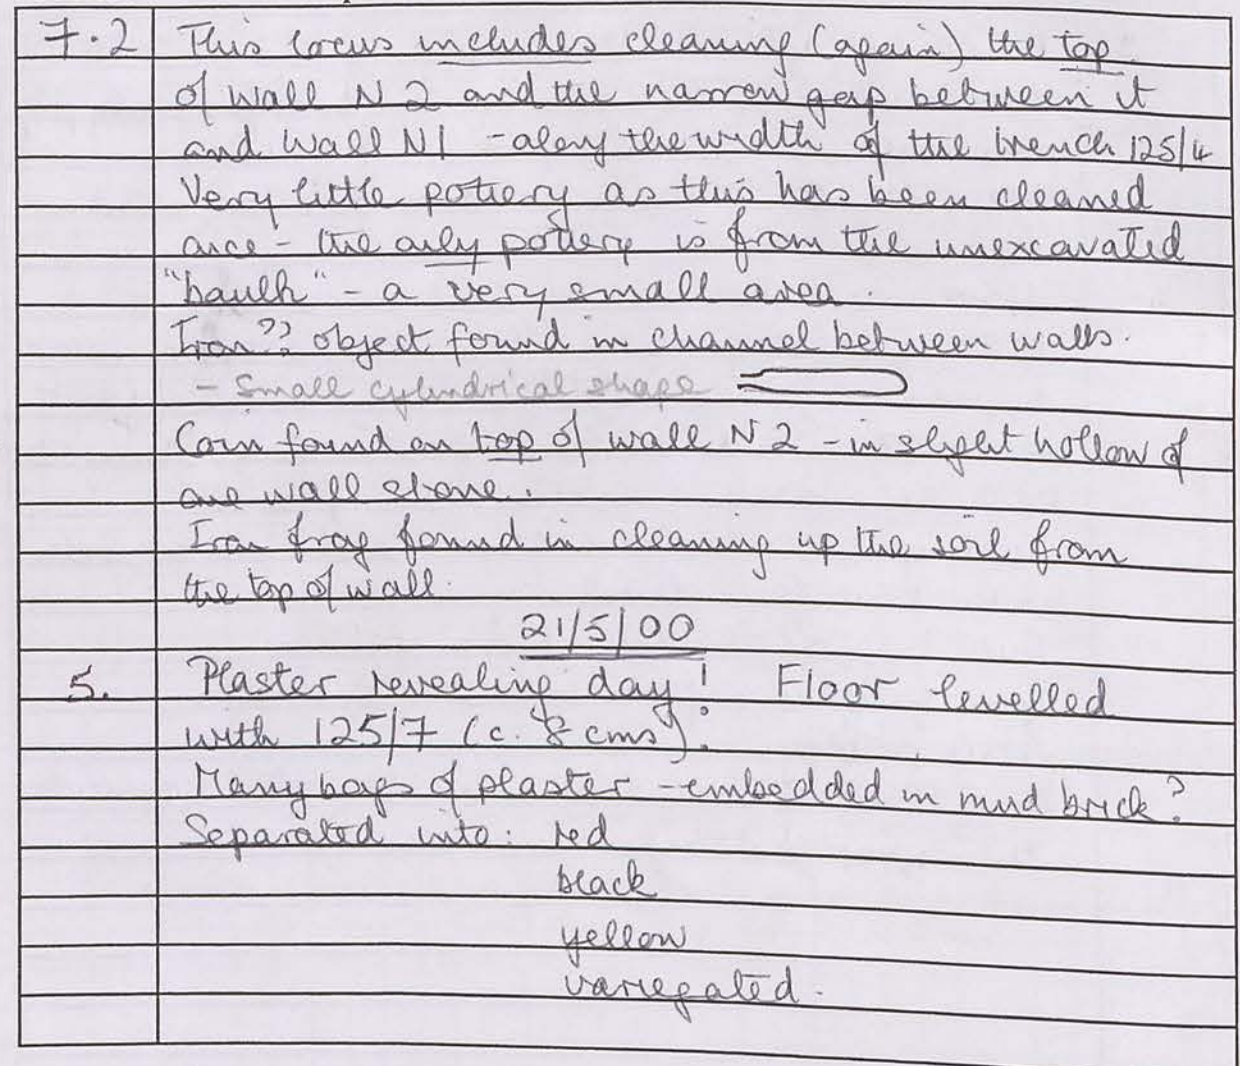 7.2 This locus includes cleaning (again) the top
of wall N 2 and the narrow gap between it
and Wall N1 - along the width of the trench 125/4
Very little pottery as this has been cleaned
once - the only pottery is from the unexcavated
"baulk" - a very small area.
Iron?? object found in channel between walls.
- small cylindrical shape
Coin found on top of wall N 2 - in slight hollow of
one wall stone.
Iron frag found in cleaning up the soil from
the top of wall.
21/5/00
5. Plaster revealing day! Floor levelled
with 125/7 (c. 8 cms).
Many bags of plaster - embedded in mud brick?
Separated into: red
black
yellow
variegated.